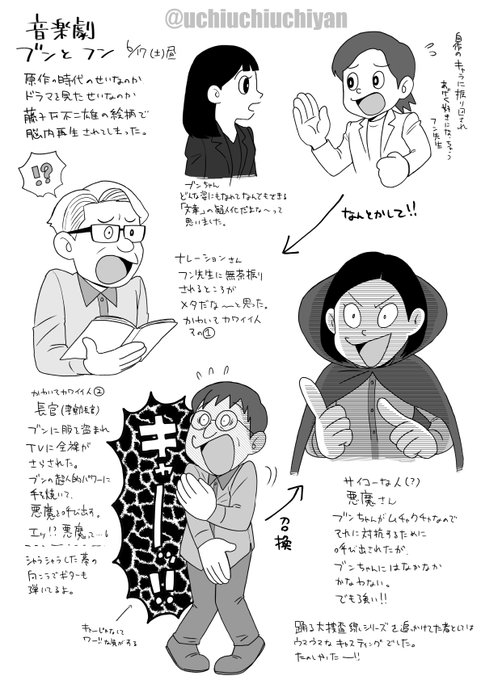 @uchiuchiuchiyan
音楽劇
ブンとフン 6/17(土)昼
原作の時代のせいなのか
ドラマを見たせいなのか
藤子不二雄の絵柄で
脳内再生されてしまった。
自作のキャラに振り回され
あげく好きになっちゃう
フン先生
ブンちゃん
どんな姿にもなれてなんでもできる
の擬人化だよな〜って
思いました。
なんとかして!!
!?
ナレーションさん
フン先生に無茶振り
されるところが
メタだなーと思った。
かわいてカワイイ人
その①
かわいてカワイイ人②
長官
ブンに服を盗まれ
TVに全裸が
さらされた。
ブンの超人的パワーに
手を焼いて、
悪魔を呼び出す。
エッ!?悪魔って…。
シャラシャラした幕の
向こうでギターも
弾いてるよ。
キャー!!
キャーじゃなくて
ワーな気がする
召喚
サイコーな人(?)
悪魔さん
ブンちゃんがムチャクチャなので
それに対抗するために
呼び出されたが、
ブンちゃんにはなかなか
かなわない。
でも強い!!
踊る大捜査線シリーズを追っかけてた者としては
ウマウマなキャスティングでした。
たのしかったー!!